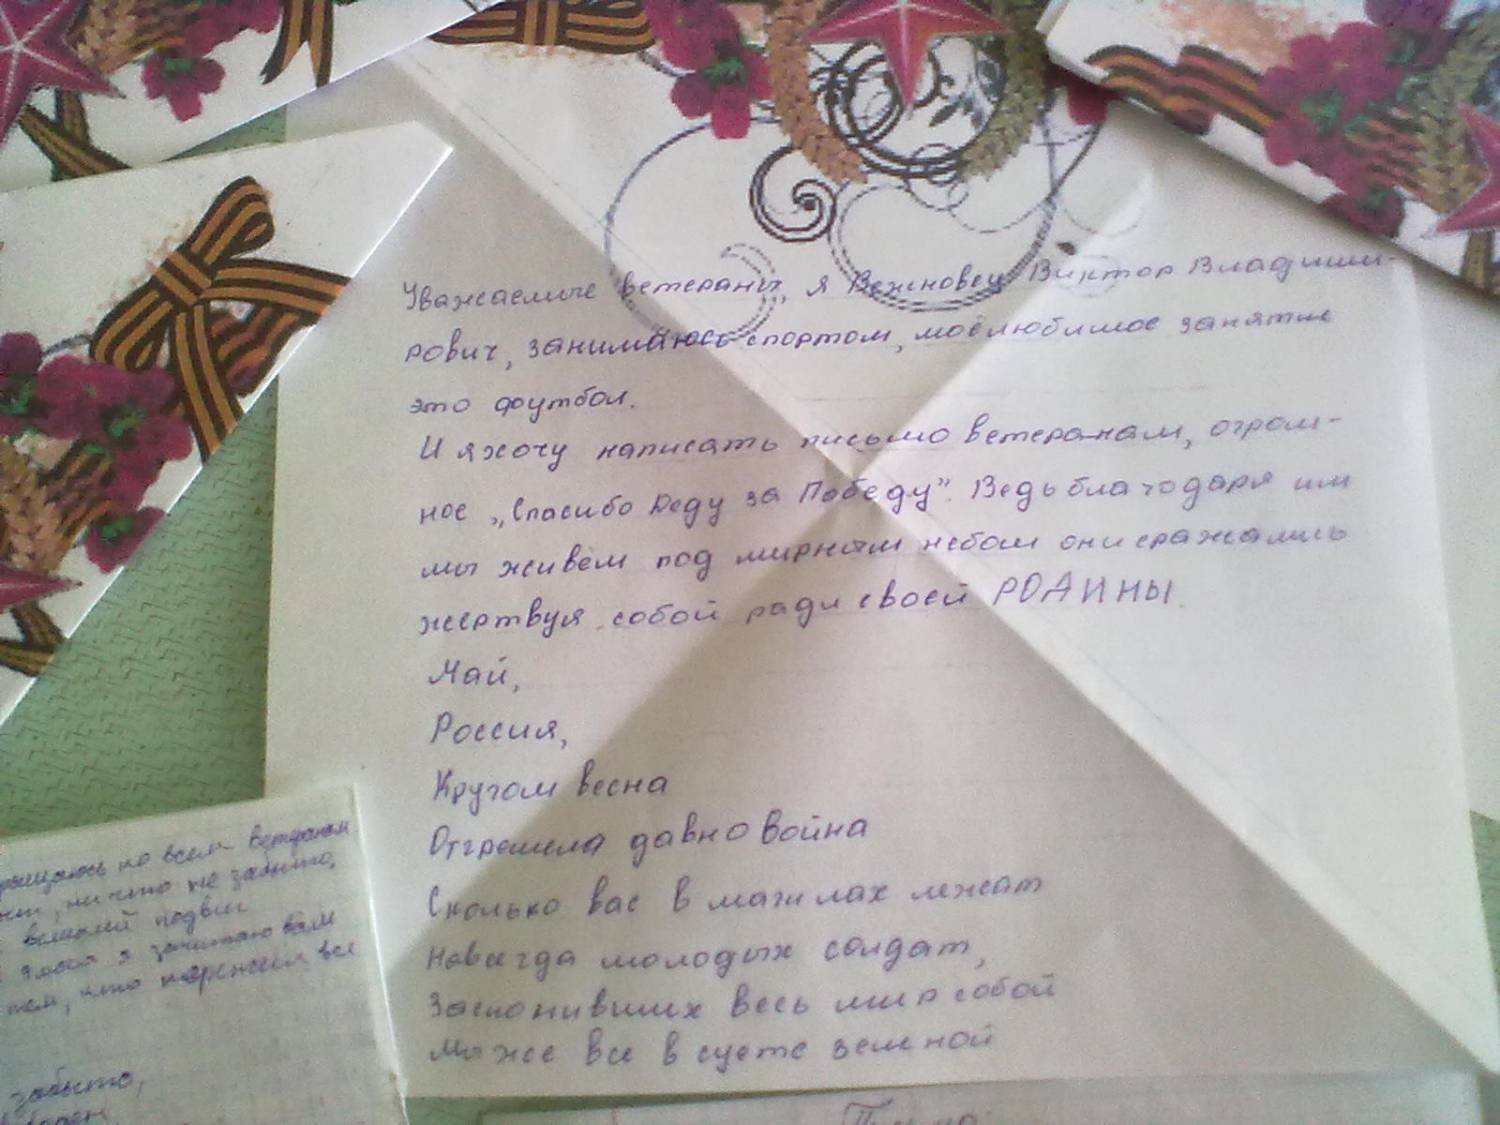 Уважаемые ветераны, я Вежновец Виктор Владими-
рович, занимаюсь спортом, моё любимое занятие
это футбол.
И я хочу написать письмо ветеранам, огром-
ное „Спасибо Деду за Победу". Ведь благодаря им
мы живём под мирным небом они сражались
жертвуя собой ради своей РОДИНЫ.
Май,
Россия,
Кругом весна
Отгремела давно война
Сколько вас в магилах лежат
Навсегда молодых солдат,
Заслонивших весь мир собой
Мы же все в суете земной
ко всем ветеранам
ничто не забыто,
подвиг
я зачитаю вам
тем, кто пережил все
забыто,